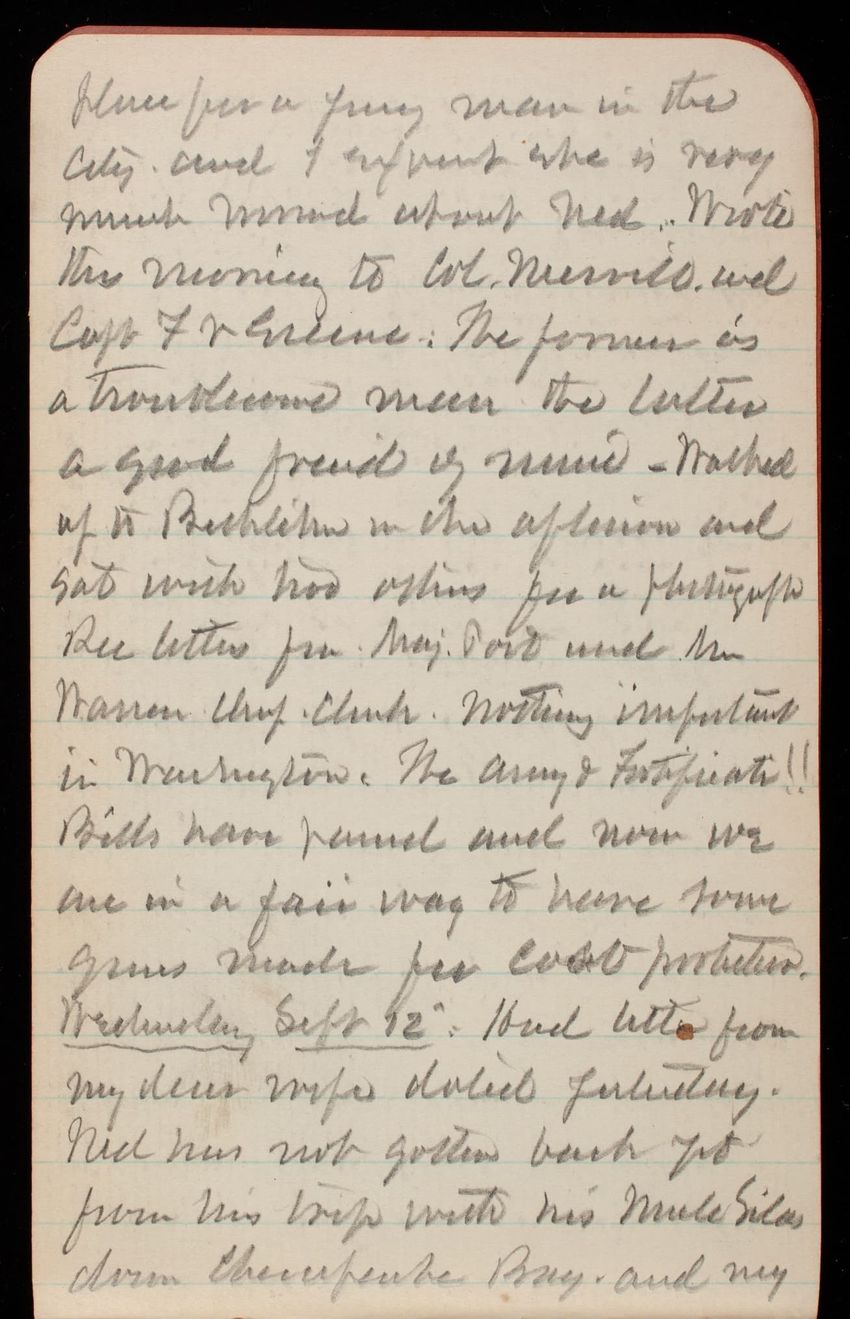 place for a young man in the
City. and I expect she is very
much worried about Ned. Wrote
this morning to Col. Merrill. and
Capt F V Greene. The former is
a troublesome man the latter
a good freind of mine - Walked
up to Bethlehem in the afternoon and
sat with two others for a photograph
Rec letters from Maj. Post and
Warren Chf. Clerk. Nothing important
in Washington. The Army & Fortificati!!
Bills have passed and now we
are in a fair way to have some
guns made for coast protection.
Wednesday Sept 12". Had letter from
my dear wife dated yesterday.
Ned has not gotten back yet
from his trip with his Mule Silas
down Chesapeake Bay. and my